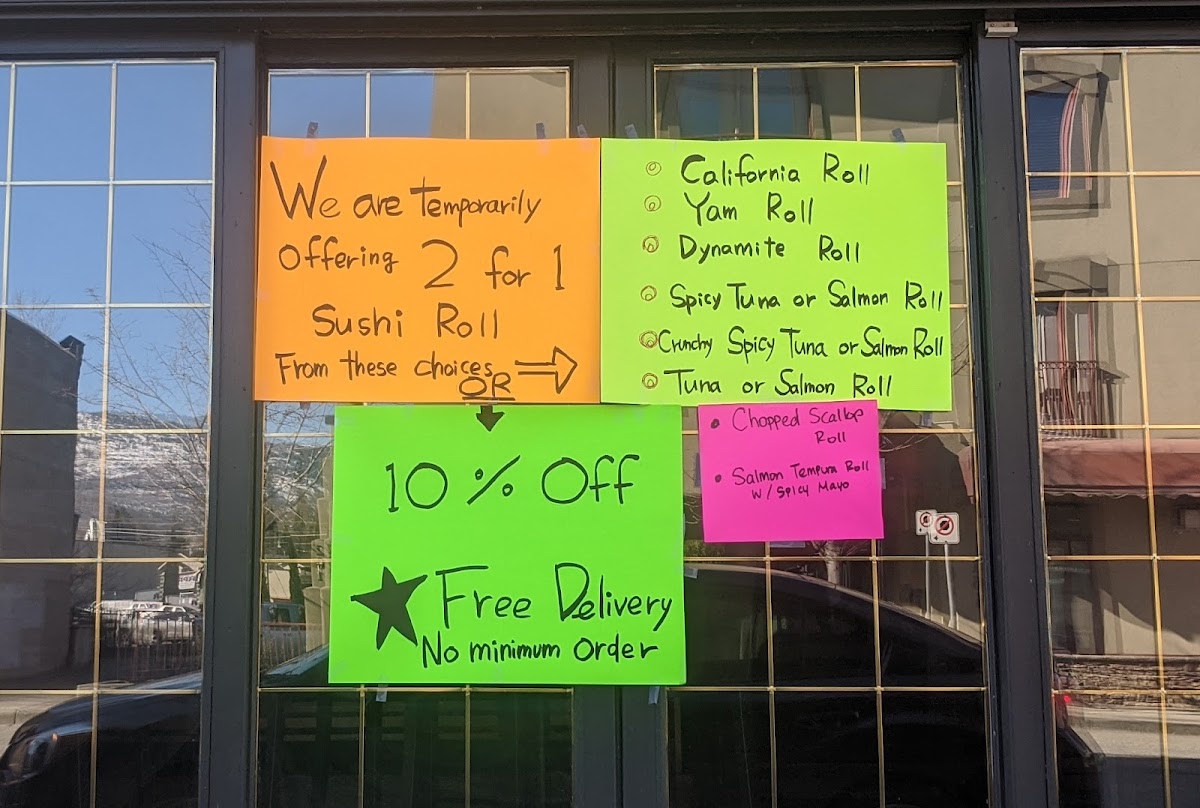 We are Temporarily
Offering 2 for 1
Sushi Roll
From these choices
OR
California Roll
Yam Roll
Dynamite Roll
Spicy Tuna or Salmon Roll
Crunchy Spicy Tuna or Salmon Roll
Tuna or Salmon Roll
• Chopped Scallop
Roll
• Salmon Tempura Roll
W/ Spicy Mayo
10% Off
Free Delivery
No minimum Order